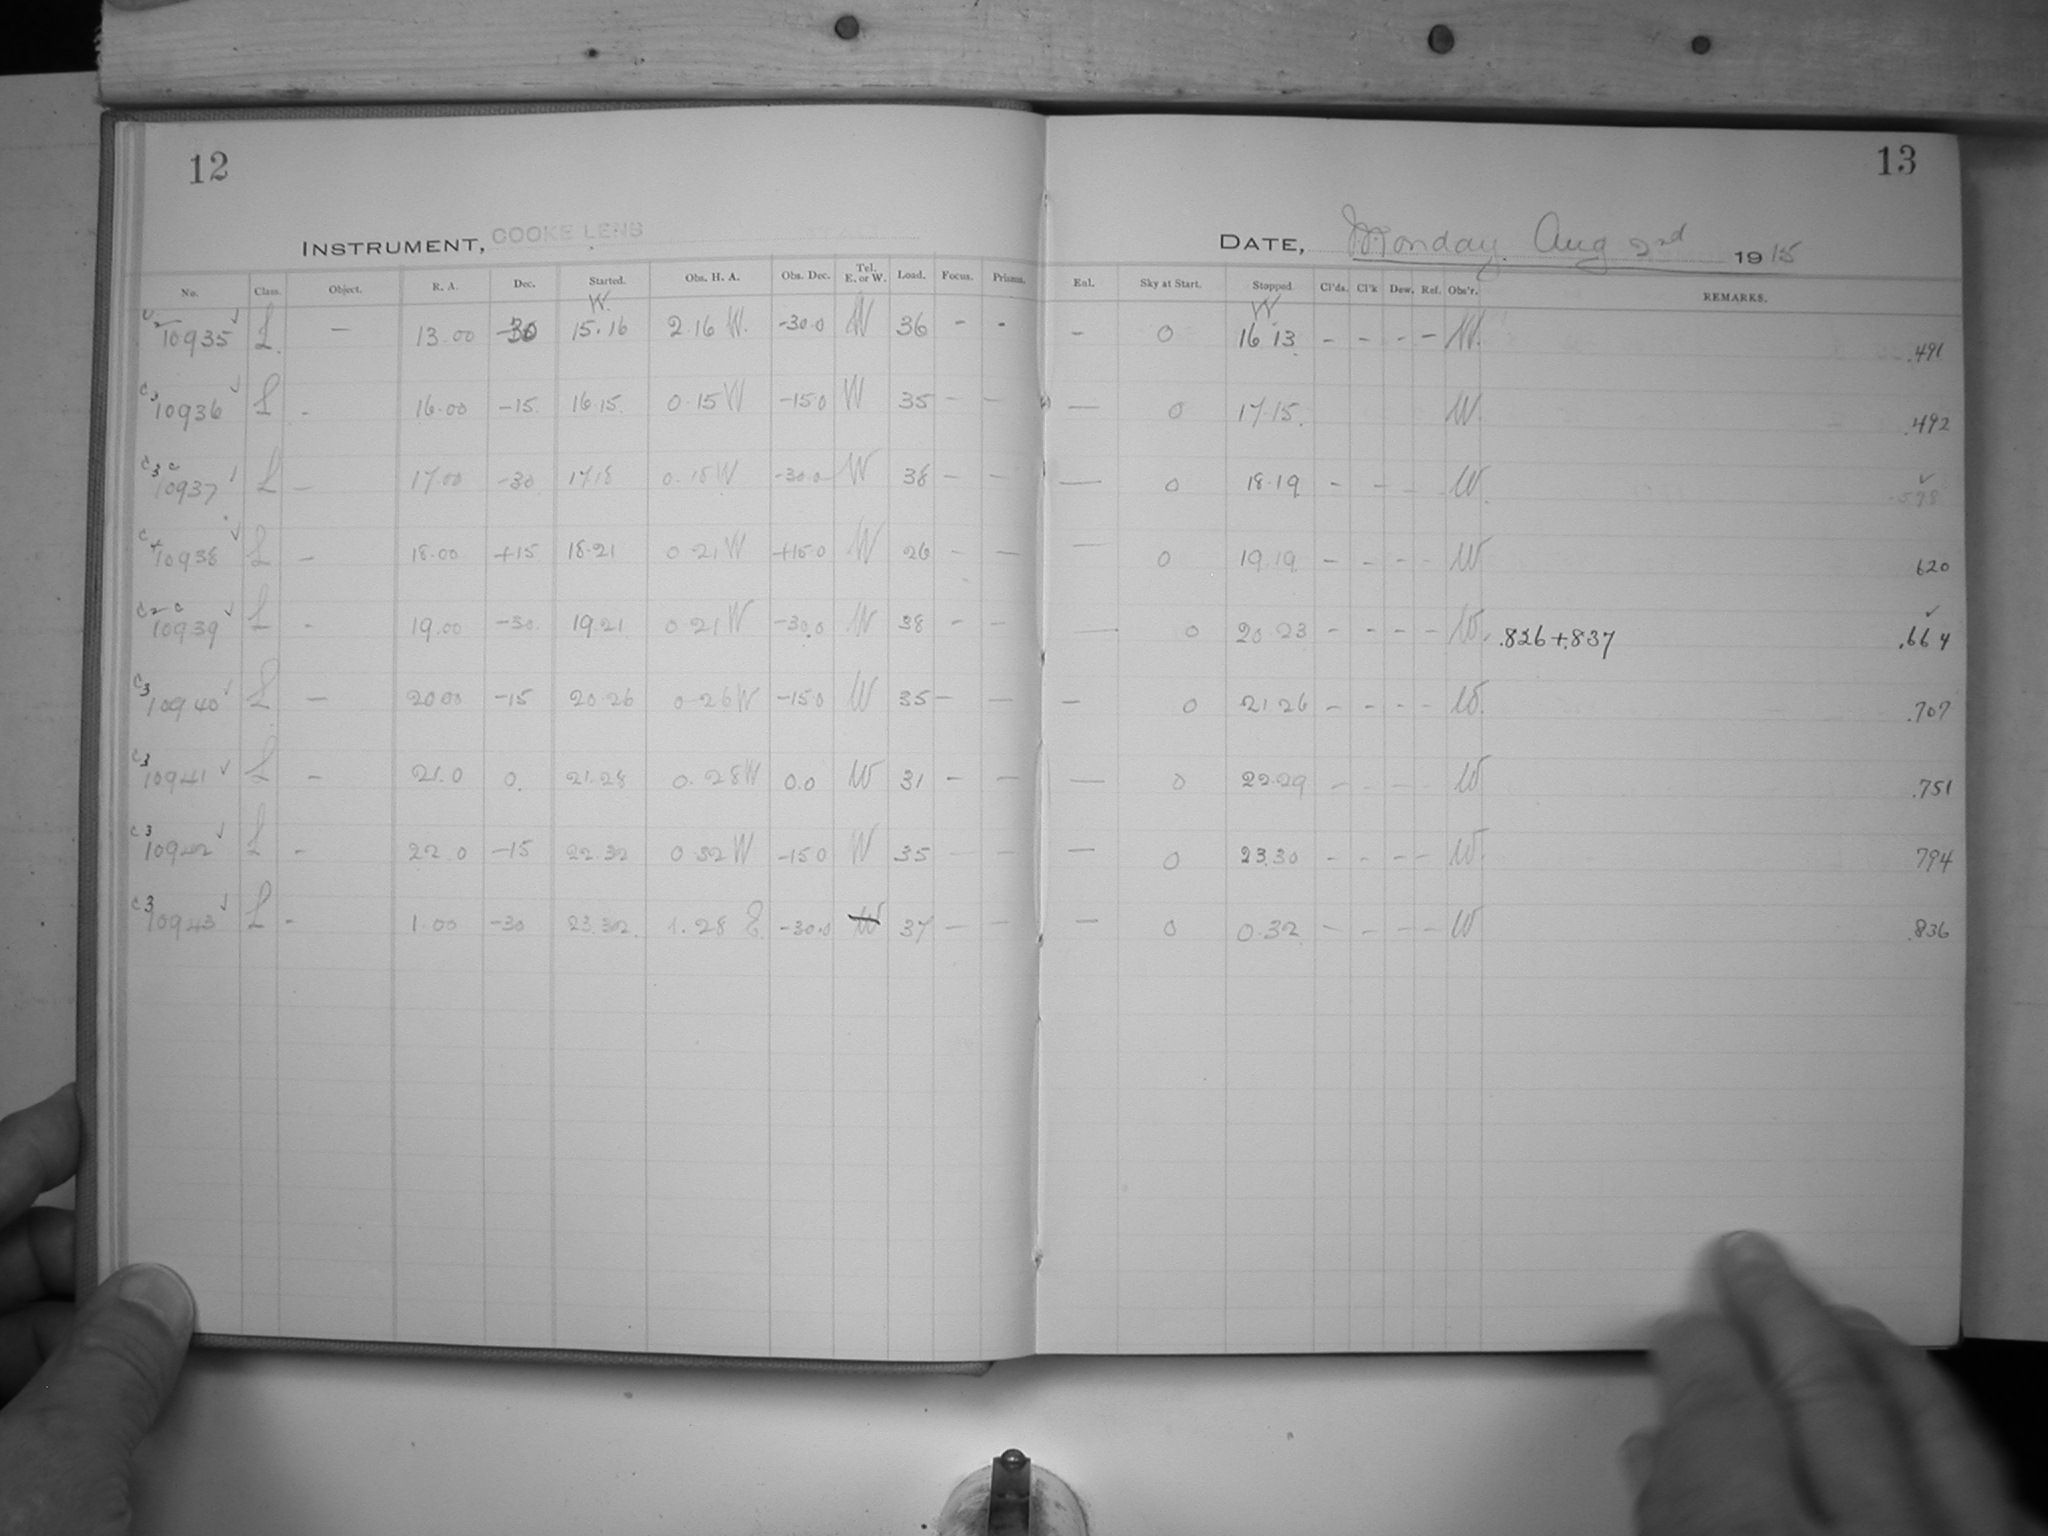 12
INSTRUMENT, COOKE LENS
No. Class. Object. R. A. Dec. Started. Obs. H. A. Obs. Dec. Tel. E. or W. Load. Focus. Prisms.
W.
10935 L. – 13.00 -30 15.16 2.16 W. -30.0 W 36 - -
C3 10936 L - 16.00 -15. 16.15. 0.15 W -15.0 W 35 - -
C3 c 10937 L - 17.00 -30 17.18 0.18 W -30.0 W 38 - -
10938 L - 18.00 +15 18.21 0.21 W +15.0 W 26 - -
10939 L - 19.00 -30. 19.21. 0.21 W -30.0 W 38 - -
C3 10940 L - 20.00 -15 20.26 0.26 W -15.0 W 35 - -
C3 10941 L - 21.0 0. 21.28 0.28 W 0.0 W 31 - -
C3 10942 L - 22.0 -15 22.32 0.32 W -15.0 W 35 - -
C3 10943 L - 1.00 -30 23.32. 1.28 E -30.0 W 37 - -
13
DATE, Monday. Aug 2nd 1915
Eul. Sky at Start. Stopped Cl'ds. Cl'k Dew. Ref. Obs'r. REMARKS.
W
- 0 16.13 - - - - W. .491
- 0 17.15. W. .492
- 0 18.19 - - - W.
- 0 19.19 - - - - W 620
- 0 20.23 - - - - W. .826+.837 .664
- 0 21.26 - - - - W. .707
- 0 22.29 - - - - W .751
- 0 23.30 - - - - W. 794
- 0 0.32 - - - - W .836